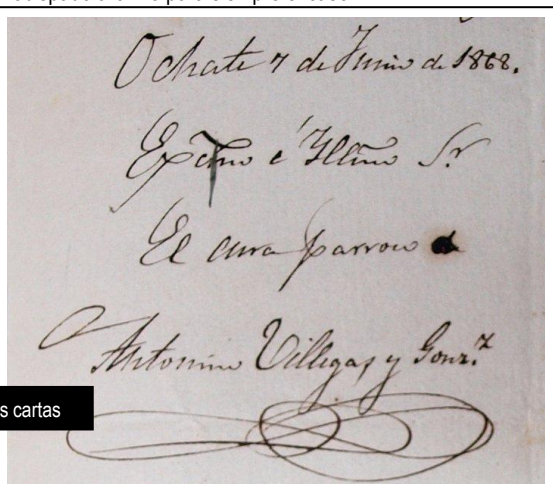 Ochate 7 de Junio de 1868.
Excmo é Illmo Sr
El cura parroco
Antonino Villegas y Gonz.z
s cartas